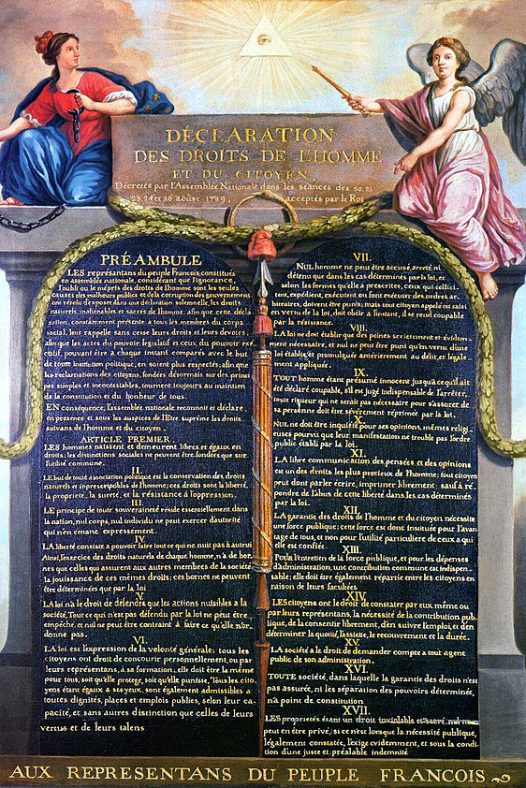 DÉCLARATION
DES DROITS DE L'HOMME
ET DU CITOYEN
Décrétés par l'Assemblée Nationale dans les séances des 20, 21
23, 24 et 26 août 1789, acceptés par le Roi
PRÉAMBULE
LES représentans du peuple François, constitués
en assemblée nationale, considérant que l'ignorance,
l'oubli ou le mépris des droits de l'homme sont les seules
causes des malheurs publics et de la corruption des gouvernemens
ont résolu d'exposer dans une déclaration solemnelle, les droits
naturels, inaliénables et sacrés de l'homme; afin que cette décla
ration, constamment présente a tous les membres du corps
social, leur rappelle sans cesse leurs droits et leurs devoirs;
afin que les actes du pouvoir législatif et ceux du pouvoir exé
cutif, pouvant être a chaque instant comparés avec le but
de toute institution politique, en soient plus respectés; afin que
les reclamations des citoyens, fondées désormais sur des principes
simples et incontestables, tournent toujours au maintien
de la constitution et du bonheur de tous.
EN conséquence, l'assemblée nationale reconnoit et déclare,
en presence et sous les auspices de l'Etre suprême les droits
suivans de l'homme et du citoyen.
ARTICLE PREMIER.
LES hommes naissent et demeurent libres et égaux en
droits. les distinctions sociales ne peuvent être fondées que sur
l'utilité commune.
II.
LE but de toute association politique est la conservation des droits
naturels et imprescriptibles de l'homme; ces droits sont la liberté,
la propriété, la sureté, et la résistance à l'oppression.
III.
LE principe de toute souveraineté réside essentiellement dans
la nation, nul corps, nul individu ne peut exercer d'autorité
qui n'en émane expressément.
IV.
LA liberté consiste a pouvoir faire tout ce qui ne nuit pas à autrui
Ainsi, l'exercice des droits naturels de chaque homme, n'a de bor-
nes que celles qui assurent aux autres membres de la société
la jouissance de ces mêmes droits; ces bornes ne peuvent
être déterminées que par la loi
V.
LA loi n'a le droit de défendre que les actions nuisibles à la
société. Tout ce qui n'est pas défendu par la loi ne peut être
empêché, et nul ne peut être contraint à faire ce qu'elle n'or-
donne pas.
VI.
LA loi est l'expression de la volonté générale; tous les
citoyens ont droit de concourir personnellement, ou par
leurs représentans, à sa formation; elle doit être la même
pour tous, soit qu'elle protege, soit qu'elle punisse. Tous les cito-
yens étant égaux a ses yeux, sont également admissibles à
toutes dignités, places et emplois publics, selon leur ca-
pacité, et sans autres distinction que celles de leurs
vertus et de leurs talens
VII.
NUL homme ne peut être accusé, arreté, ni
détenu que dans les cas déterminés par la loi, et
selon les formes qu'elle a prescrites, ceux qui sollici-
tent, expédient, exécutent ou font exécuter des ordres ar-
bitraires, doivent être punis; mais tout citoyen appelé ou saisi
en vertu de la loi, doit obéir a l'instant, il se rend coupable
par la résistance.
VIII.
LA loi ne doit établir que des peines strictement et évidem-
ment nécessaire, et nul ne peut être puni qu'en vertu d'une
loi établie et promulguée antérieurement au délit, et légale-
ment appliquée.
IX.
TOUT homme étant présumé innocent jusqu'a ce qu'il ait
été déclaré coupable, s'il est jugé indispensable de l'arrêter,
toute rigueur qui ne serait pas nécessaire pour s'assurer de
sa personne doit être sévèrement réprimée par la loi.
X.
NUL ne doit être inquiété pour ses opinions, mêmes religi
euses pourvu que leur manifestation ne trouble pas l'ordre
public établi par la loi.
XI.
LA libre communication des pensées et des opinions
est un des droits les plus precieux de l'homme; tout citoyen
peut donc parler écrire, imprimer librement: sauf à ré-
pondre de l'abus de cette liberté dans les cas déterminés
par la loi.
XII.
LA garantie des droits de l'homme et du citoyen nécessite
une force publique; cette force est donc instituée pour l'avan-
tage de tous, et non pour l'utilité particuliere de ceux a qui
elle est confiée.
XIII.
POUR l'entretien de la force publique, et pour les dépenses
d'administration, une contribution commune est indispen-
sable; elle doit être également répartie entre les citoyens en
raison de leurs facultées
XIV.
LES citoyens ont le droit de constater par eux même ou
par leurs représentans, la nécessité de la contribution pub-
lique, de la consentir librement, d'en suivre l'emploi, et d'en
déterminer la quotité, l'assiette, le recouvrement et la durée.
XV.
LA société a le droit de demander compte a tout agent
public de son administration.
XVI.
TOUTE société, dans laquelle la garantie des droits n'est
pas assurée, ni les séparation des pouvoirs déterminée,
n'a point de constitution
XVII.
LES propriétés étant un droit inviolable et sacré, nul ne
peut en être privé, si ce n'est lorsque la nécessité publique,
légalement constatée, l'exige évidemment, et sous la condi-
tion d'une juste et préalable indemnité
AUX REPRESENTANS DU PEUPLE FRANCOIS